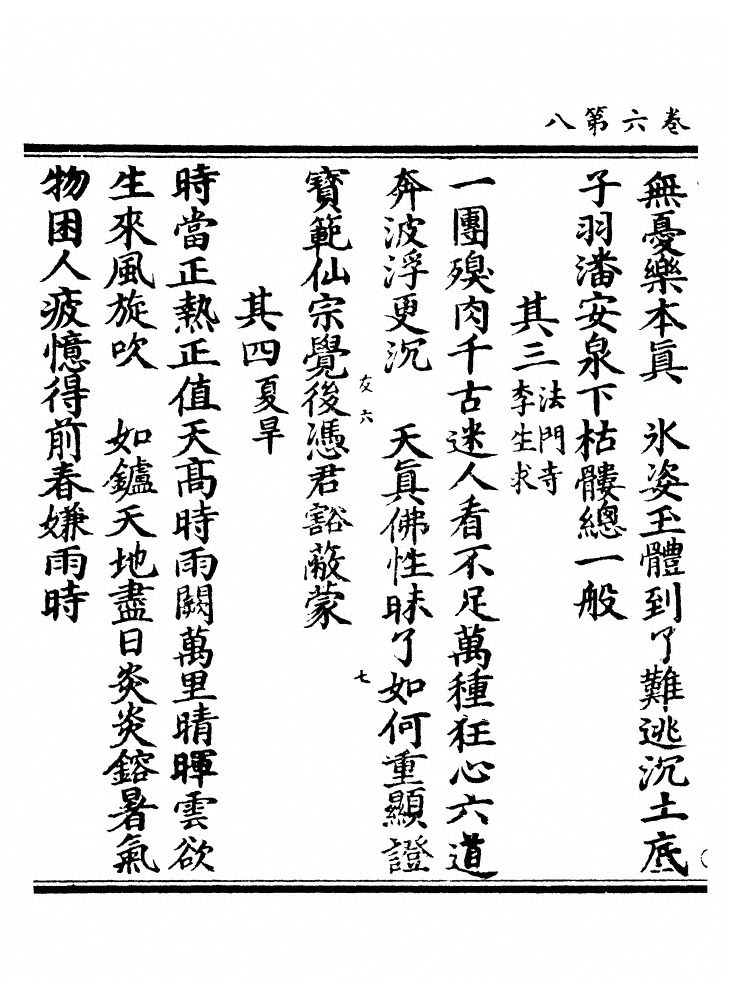 卷六第八
無憂樂本眞　氷姿玉體到了難逃沉土底
子羽潘安泉下枯髏總一般
其三法門寺李生求
一團殠肉千古迷人看不足萬種狂心六道
奔波浮更沉　天眞佛性昧了如何重顯證
友六
七
寳範仙宗覺後憑君豁蔽蒙
其四夏旱
時當正熱正值天髙時雨闕萬里晴暉雲欲
生來風旋吹　如鑪天地盡日炎炎鎔暑氣
物困人疲憶得前春嫌雨時